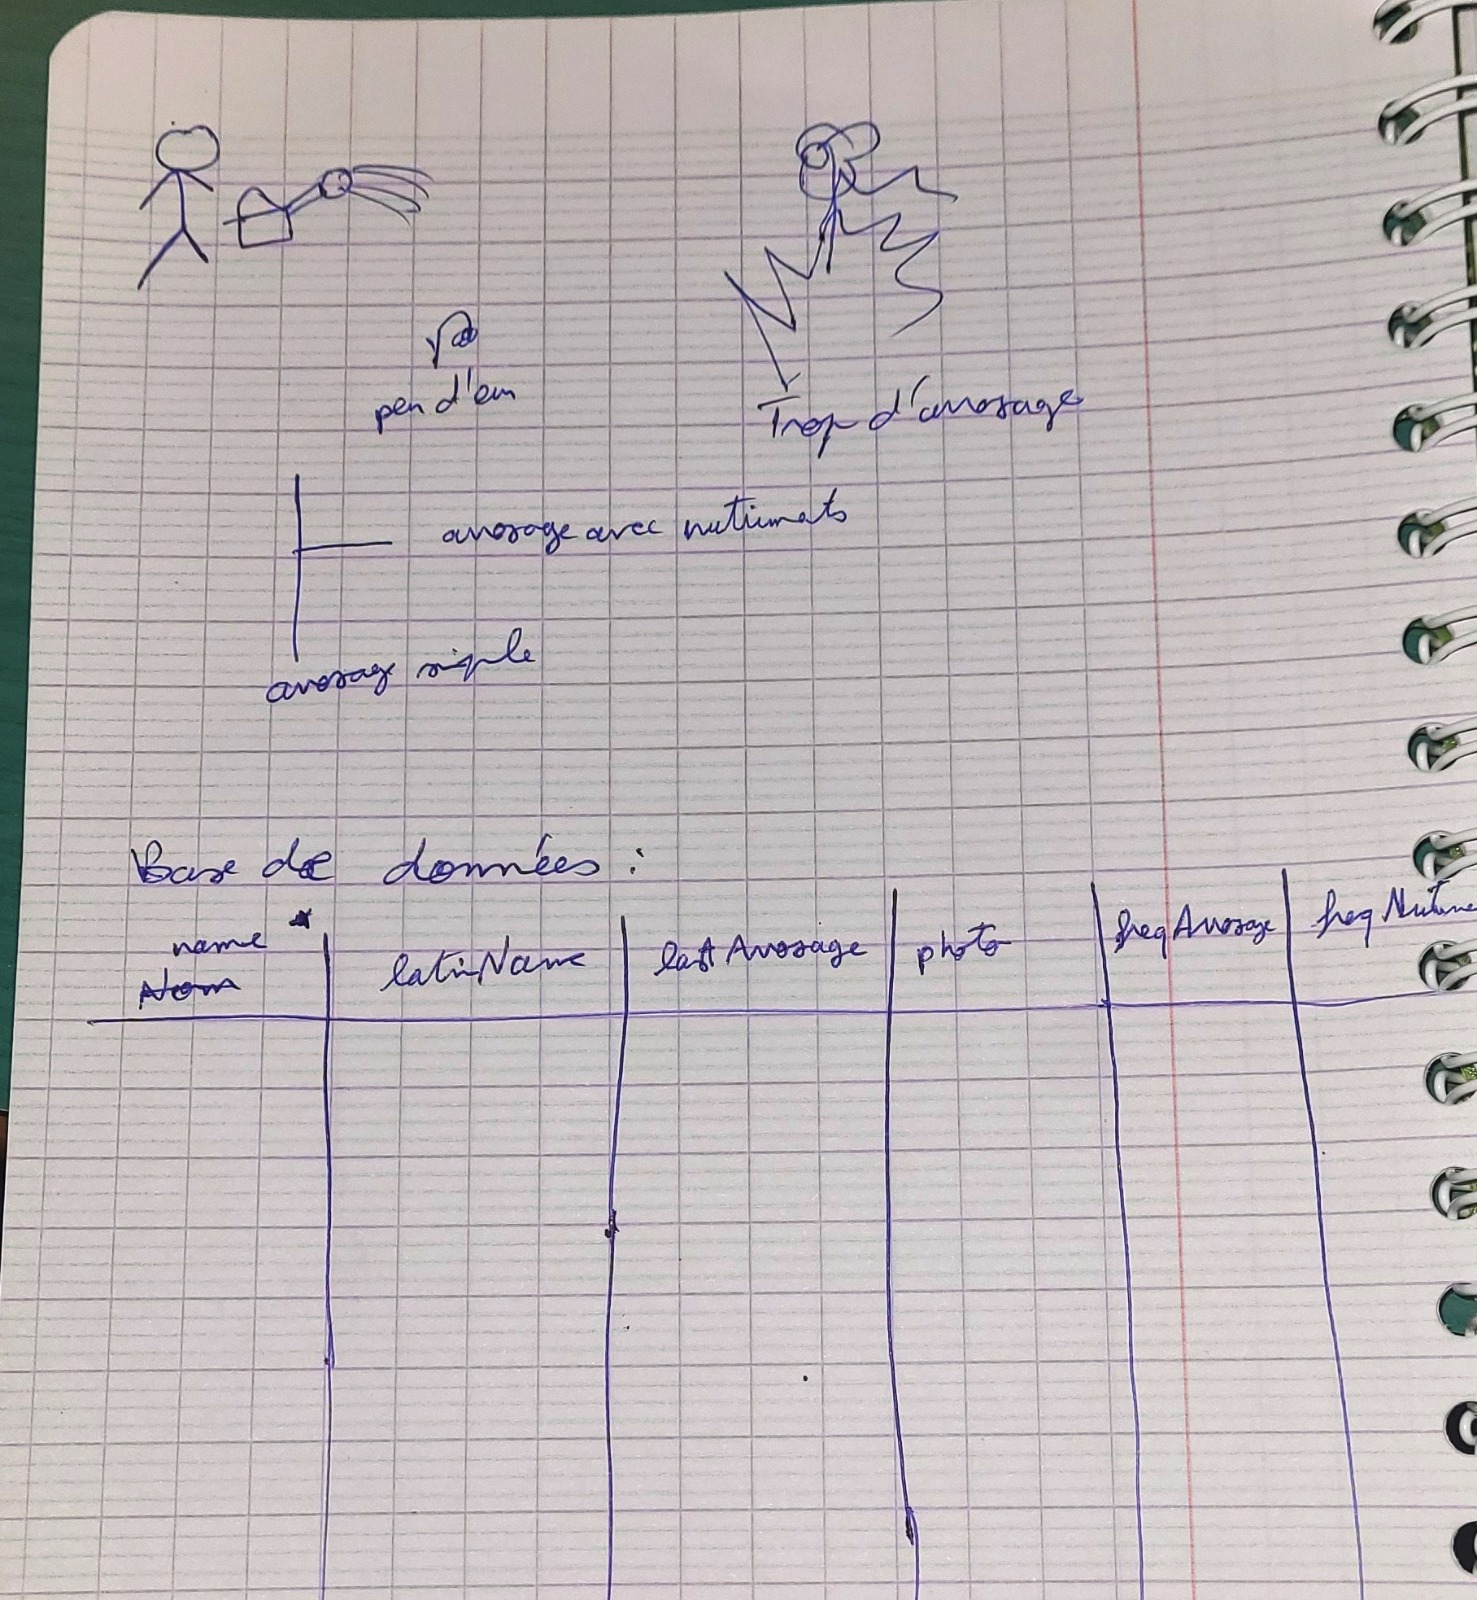 peu d'eau
Trop d'arrosage
arrosage avec nutriments
arrosage simple
Base de données :
name * latinName lastArrosage photo freqArrosage freq
Nom